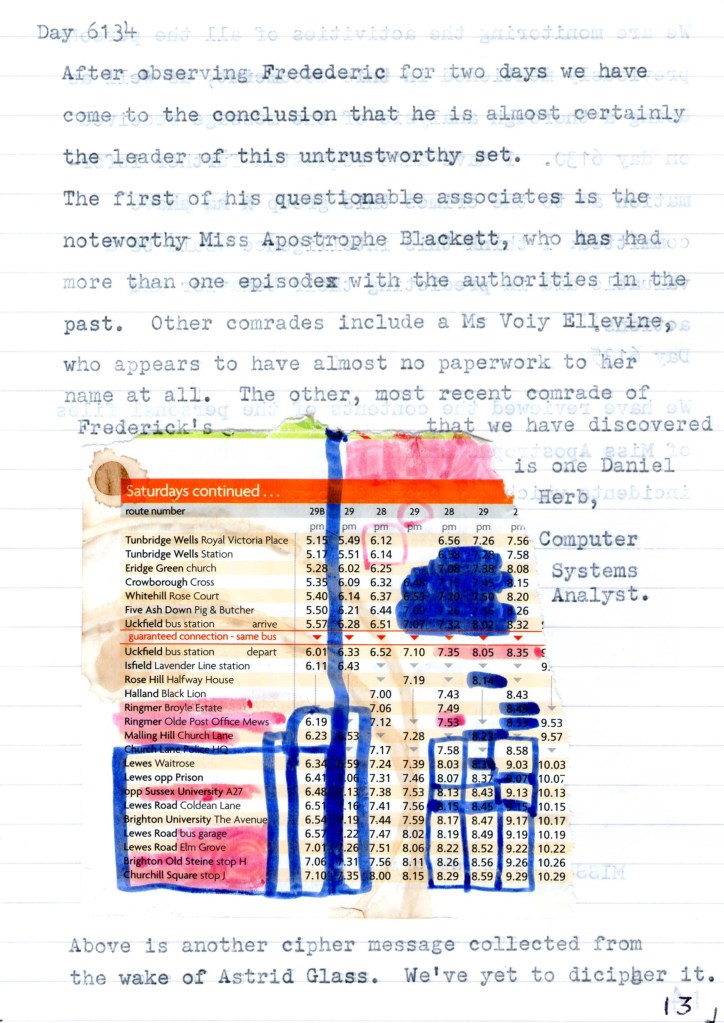 Day 6134
After observing Fredederic for two days we have
come to the conclusion that he is almost certainly
the leader of this untrustworthy set.
The first of his questionable associates is the
noteworthy Miss Apostrophe Blackett, who has had
more than one episode with the authorities in the
past. Other comrades include a Ms Voiy Ellevine,
who appears to have almost no paperwork to her
name at all. The other, most recent comrade of
Frederick's that we have discovered
is one Daniel
Herb,
Computer
Systems
Analyst.
Saturdays continued . . .
route number 29B 29 28 29 28 29 2
pm pm pm pm pm pm pm
Tunbridge Wells Royal Victoria Place 5.15 5.49 6.12 6.56 7.26 7.56
Tunbridge Wells Station 5.17 5.51 6.14 7.58
Eridge Green church 5.28 6.02 6.25 8.08
Crowborough Cross 5.35 6.09 6.32 8.15
Whitehill Rose Court 5.40 6.14 6.37 6.53 8.20
Five Ash Down Pig & Butcher 5.50 6.21 6.44 7.00 8.26
Uckfield bus station arrive 5.57 6.28 6.51 7.07 7.32 8.02 8.32
guaranteed connection - same bus
Uckfield bus station depart 6.01 6.33 6.52 7.10 7.35 8.05 8.35
Isfield Lavender Line station 6.11 6.43 9.
Rose Hill Halfway House 7.19 8.14
Halland Black Lion 7.00 7.43 8.43
Ringmer Broyle Estate 7.06 7.49 8.49
Ringmer Olde Post Office Mews 6.19 7.12 7.53 8.53 9.53
Malling Hill Church Lane 6.23 6.53 7.28 8.23 9.57
Church Lane Police HQ 7.17 7.58 8.58
Lewes Waitrose 6.34 6.59 7.24 7.39 8.03 9.03 10.03
Lewes opp Prison 6.41 7.06 7.31 7.46 8.07 8.37 9.07 10.07
opp Sussex University A27 6.48 7.13 7.38 7.53 8.13 8.43 9.13 10.13
Lewes Road Coldean Lane 6.51 7.16 7.41 7.56 8.15 8.45 9.15 10.15
Brighton University The Avenue 6.54 7.19 7.44 7.59 8.17 8.47 9.17 10.17
Lewes Road bus garage 6.57 7.22 7.47 8.02 8.19 8.49 9.19 10.19
Lewes Road Elm Grove 7.01 7.26 7.51 8.06 8.22 8.52 9.22 10.22
Brighton Old Steine stop H 7.06 7.31 7.56 8.11 8.26 8.56 9.26 10.26
Churchill Square stop J 7.10 7.35 8.00 8.15 8.29 8.59 9.29 10.29
Above is another cipher message collected from
the wake of Astrid Glass. We've yet to dicipher it.
13